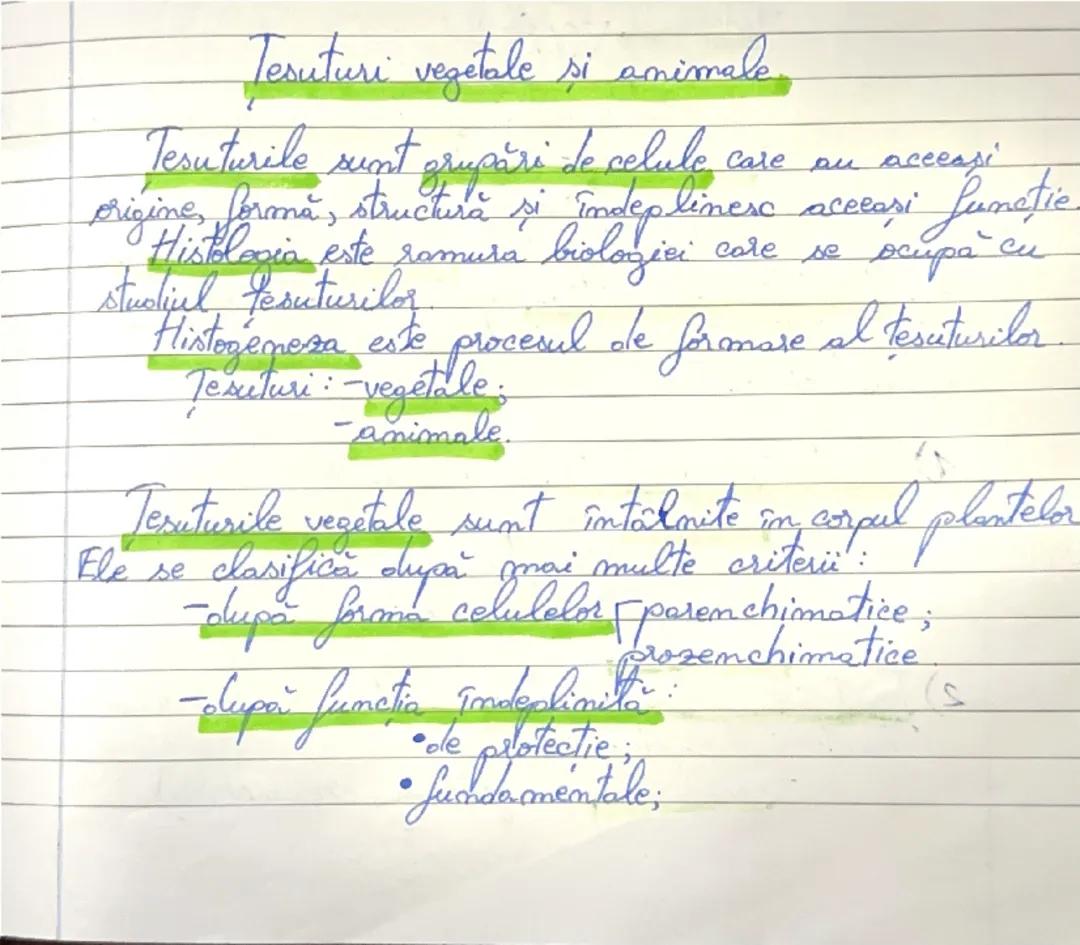 Țesuturi vegetale și animale
Țesuturile sunt grupări de celule care au aceeași
origine, formă, structură și îndeplinesc aceeași funcție.
Histologia este ramura biologiei care se ocupă cu
studiul țesuturilor.
Histogeneza este procesul de formare al țesuturilor.
Țesuturi: -vegetale;
-animale.
Țesuturile vegetale sunt întâlnite în corpul plantelor
Ele se clasifică după mai multe criterii:
-după forma celulelor parenchimatice;
prozenchimatice.
-după funcția îndeplinită:
•de protecție;
•fundamentale;